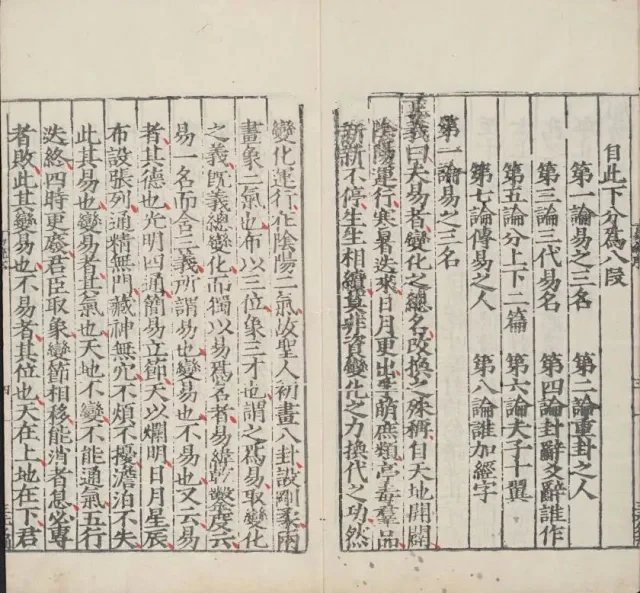 自此下分爲八段
第一論易之三名 第二論重卦之人
第三論三代易名 第四論卦辭爻辭誰作
第五論分上下二篇 第六論夫子十翼
第七論傳易之人 第八論誰加經字
第一論易之三名
正義曰夫易者變化之總名改換之殊稱自天地開闢
陰陽運行寒暑迭來日月更出孚萌庶類亭毒羣品
新新不停生生相續莫非資變化之力換代之功然
變化運行在陰陽二氣故聖人初畫八卦設剛柔兩
畫象二氣也布以三位象三才也謂之爲易取變化
之義旣義總變化而獨以易爲名者易緯乾鑿度云
易一名而含三義所謂易也變易也不易也又云易
者其德也光明四通簡易立節天以爛明日月星辰
布設張列通精無門藏神無穴不煩不擾澹泊不失
此其易也變易者其氣也天地不變不能通氣五行
迭終四時更廢君臣取象變節相移能消者息必專
者敗此其變易也不易者其位也天在上地在下君